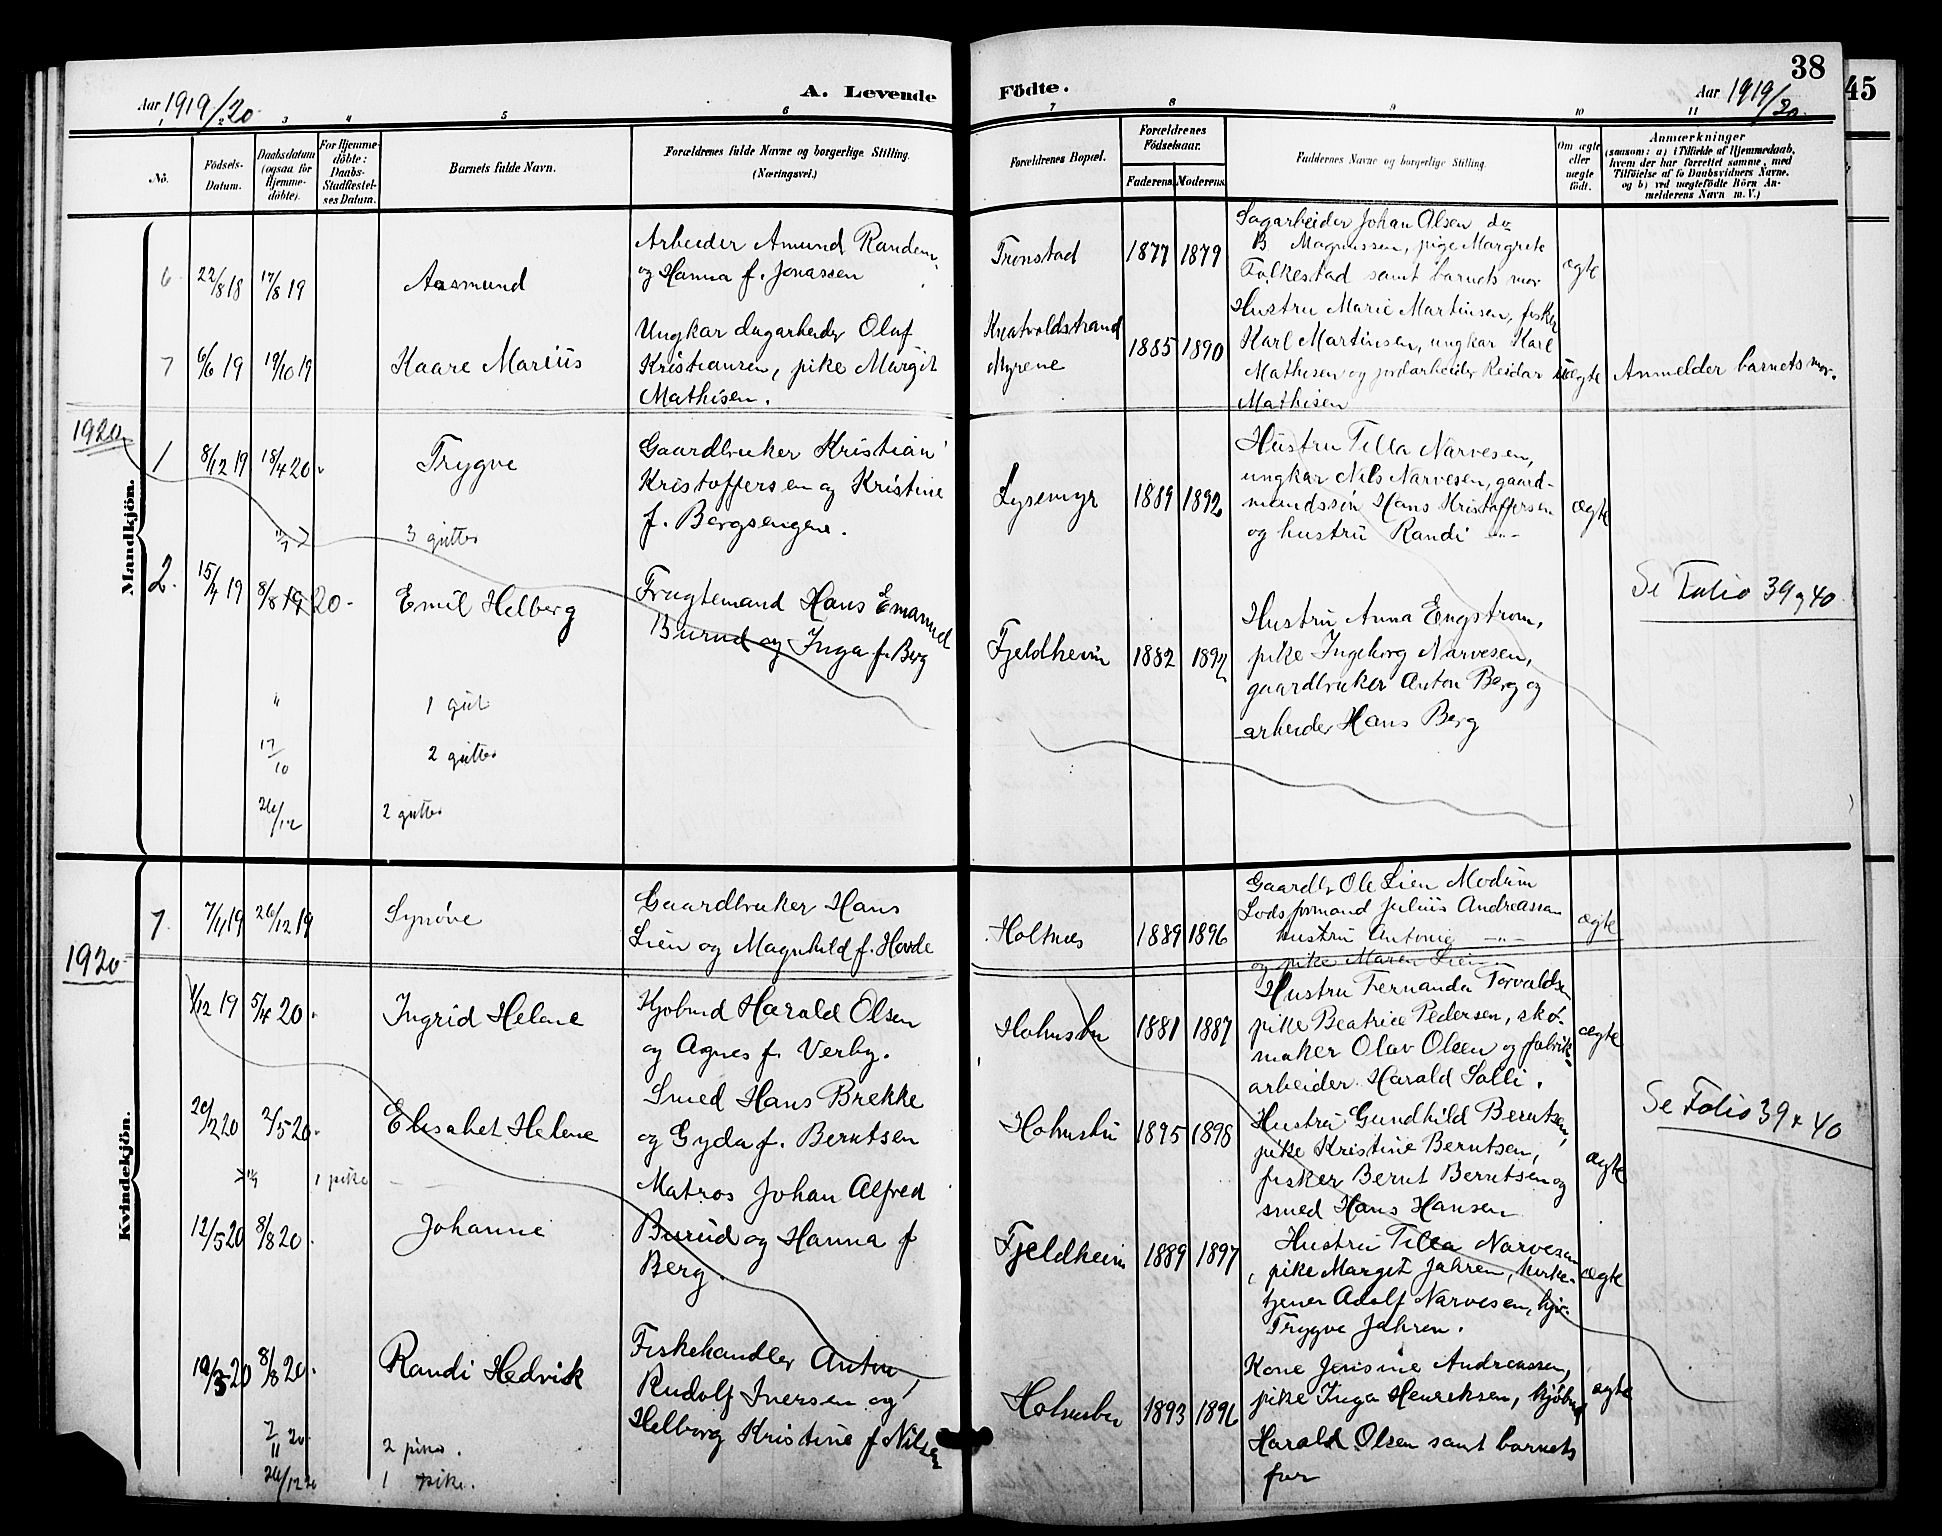 38
45
Aar 1919/20.
A. Levende Födte.
Aar 1919/20.
1 2 3 4 5 6 7 8 9 10 11
No.
Födsels-
Datum.
Daabsdatum
(ogsaa for
Hjemme-
döbte).
For Hjemme-
döbte:
Daabs-
Stadfæstel-
ses Datum.
Barnets fulde Navn.
Forældrenes fulde Navne og borgerlige Stilling.
(Næringsvei.)
Forældrenes Bopæl.
Forældrenes
Födselsaar.
Faderens. Moderens.
Faddernes Navne og borgerlige Stilling.
Om ægte
eller
uægte
födt.
Anmærkninger
(saasom: a) i Tilfælde af Hjemmedaab,
hvem der har forrettet samme, med
Tilföielse af to Daabsvidners Navne.
og b) ved uægtefödte Börn An-
melderens Navn m. V.)
Mandkjön.
6 22/8 18 17/8 19 Aasmund
Arbeider Amund Randem
og Hanna f. Jonassen
Tronstad 1877 1879
Sagarbeider Johan Olsen do
B. Magnussen, pige Margrete
Folkestad samt barnets mor
ægte
7 6/6 19 19/10 19 Kaare Marius
Ungkar dagarbeider Oluf
Kristiansen, pike Margit
Mathisen.
Knatvoldstrand
Myrene
1885 1890
Hustru Marie Martinsen, fisker
Karl Martinsen, ungkar Karl
Mathisen og jordarbeider Reidar
Mathisen
uægte Anmelder barnets mor.
1920
1 8/12 19 18/4 20. Trygve
Gaardbruker Kristian
Kristoffersen og Kristine
f. Bergsengene.
Lysemyr 1889 1892
Hustru Tilla Narvesen,
ungkar Nils Narvesen, gaard-
mandssön Hans Kristoffersen
og hustru Randi -"-
ægte
3 gutter
2. 15/7 19 8/8 19 20- Emil Helberg
Frugtemand Hans Emanuel
Burud og Inga f. Berg
Fjeldheim 1882 1892
Hustru Anna Engstrom,
pike Ingeborg Narvesen,
gaardbruker Anton Berg og
arbeider Hans Berg
Se Folio 39 og 40.
" 1 gut
17/10 2 gutter
26/12 2 gutter
Kvindekjön.
7. 7/11 19 26/12 19 Synöve
Gaardbruker Hans
Lien og Magnhild f. Hovde
Holtnes 1889 1896
Gaardbr Ole Lien Modum
Lodsformand Julius Andreassen
hustru Antonie -"-
og pike Maren Lien
ægte
1920
1/12 19 5/4 20. Ingrid Helene
Kjöbmd Harald Olsen
og Agnes f. Verby.
Holmsbu 1881 1887
Hustru Fernanda Torvaldsen
pike Beatrice Pedersen, sko-
maker Olav Olsen og fabrik-
arbeider Harald Solli.
ægte
20/2 20 2/5 20. Elisabet Helene
Smed Hans Brekke
og Gyda f. Berntsen
Holmsbu 1895 1898
Hustru Gundhild Berntsen,
pike Kristine Berntsen,
fisker Bernt Berntsen og
smed Hans Hansen
ægte
Se Folio 39 & 40
1 pike
12/5 20 8/8 20. Johanne
Matros Johan Alfred
Burud og Hanna f
Berg.
Fjeldheim 1889 1897
Hustru Tilla Narvesen
, pike Margit Jahren, kirke-
tjener Adolf Narvesen, kjr.
Trygve Jahren.
ægte
19/3 20 8/8 20. Randi Hedvik
Fiskehandler Anton
Rudolf Iversen og
Helborg Kristine f Nilsen
Holmsbu 1893 1896
Kone Jensine Andreassen,
pike Inga Henriksen, kjöbmd
Harald Olsen samt barnets
far
ægte
7/11 20. 2 piker.
26/12 20 1 pike.